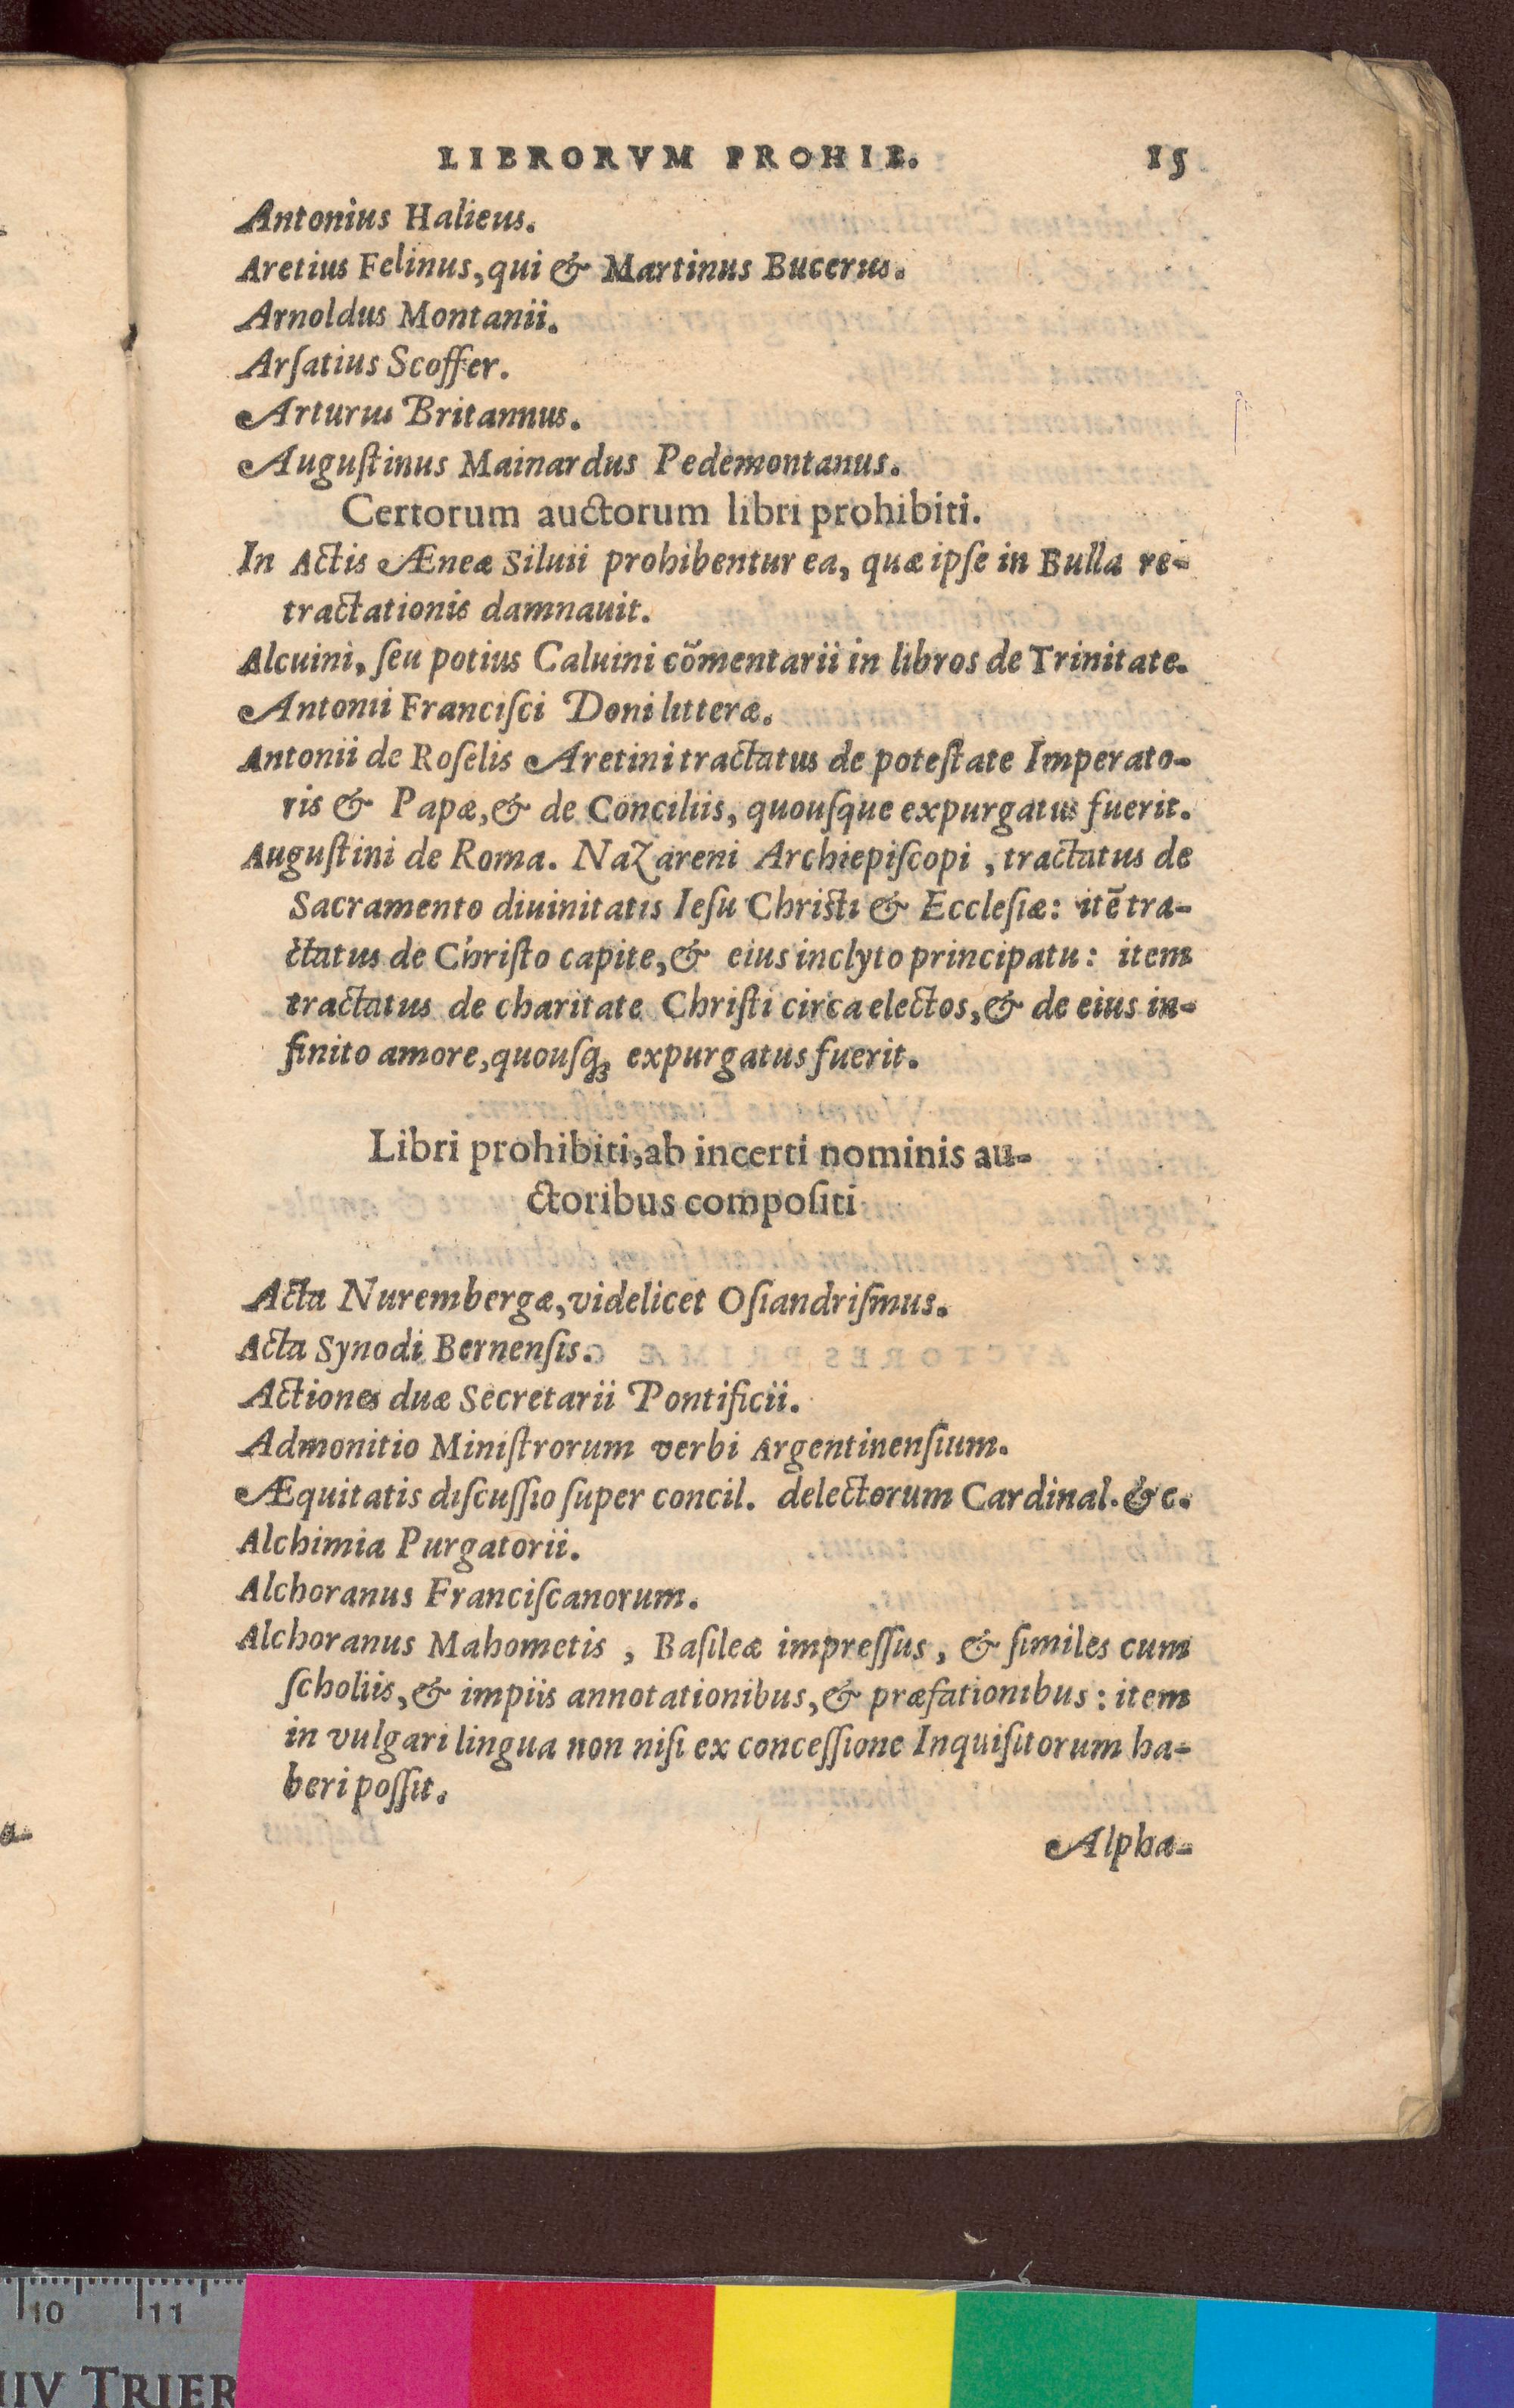 LIBRORVM PROHIB. 15
Antonius Halieus.
Aretius Felinus, qui & Martinus Bucerus.
Arnoldus Montanii.
Arſatius Scoffer.
Arturus Britannus.
Auguſtinus Mainardus Pedemontanus.
Certorum auctorum libri prohibiti.
In Actis Æneæ Siluii prohibentur ea, quæ ipſe in Bulla re-
tractationis damnauit.
Alcuini, ſeu potius Caluini cõmentarii in libros de Trinitate.
Antonii Franciſci Doni litteræ.
Antonii de Roſelis Aretini tractatus de poteſtate Imperato-
ris & Papæ, & de Conciliis, quouſque expurgatus fuerit.
Auguſtini de Roma. Nazareni Archiepiſcopi, tractatus de
Sacramento diuinitatis Ieſu Chriſti & Eccleſiæ: itē tra-
ctatus de Chriſto capite, & eius inclyto principatu: item
tractatus de charitate Chriſti circa electos, & de eius in-
finito amore, quouſq; expurgatus fuerit.
Libri prohibiti, ab incerti nominis au-
ctoribus compoſiti
Acta Nurembergæ, videlicet Oſiandriſmus.
Acta Synodi Bernenſis.
Actiones duæ Secretarii Pontificii.
Admonitio Miniſtrorum verbi Argentinenſium.
Æquitatis diſcuſſio ſuper concil. delectorum Cardinal. &c.
Alchimia Purgatorii.
Alchoranus Franciſcanorum.
Alchoranus Mahometis, Baſileæ impreſſus, & ſimiles cum
ſcholiis, & impiis annotationibus, & præfationibus: item
in vulgari lingua non niſi ex conceſſione Inquiſitorum ha-
beri poſſit.
Alpha-
10 11
IIV TRIER